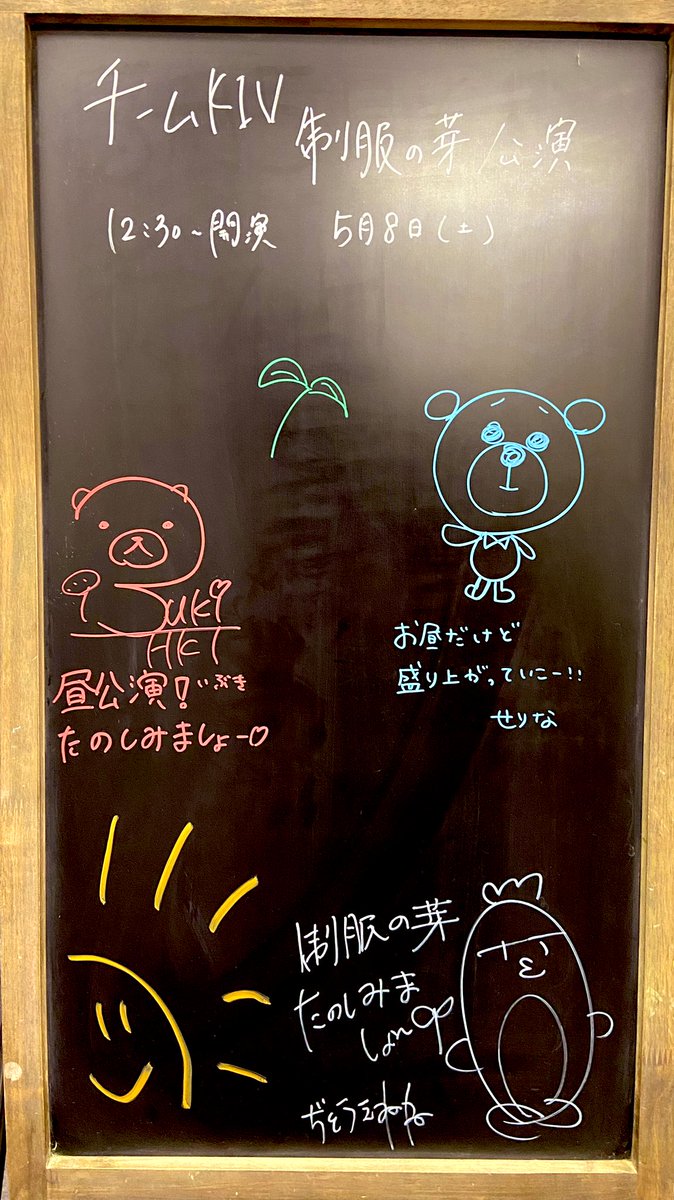 チームKIV
制服の芽公演
12:30~開演 5月8日(土)
HKT
昼公演!いぶき
たのしみましょー♡
お昼だけど
盛り上がっていこー!!
せりな
制服の芽
たのしみま
しょ〜